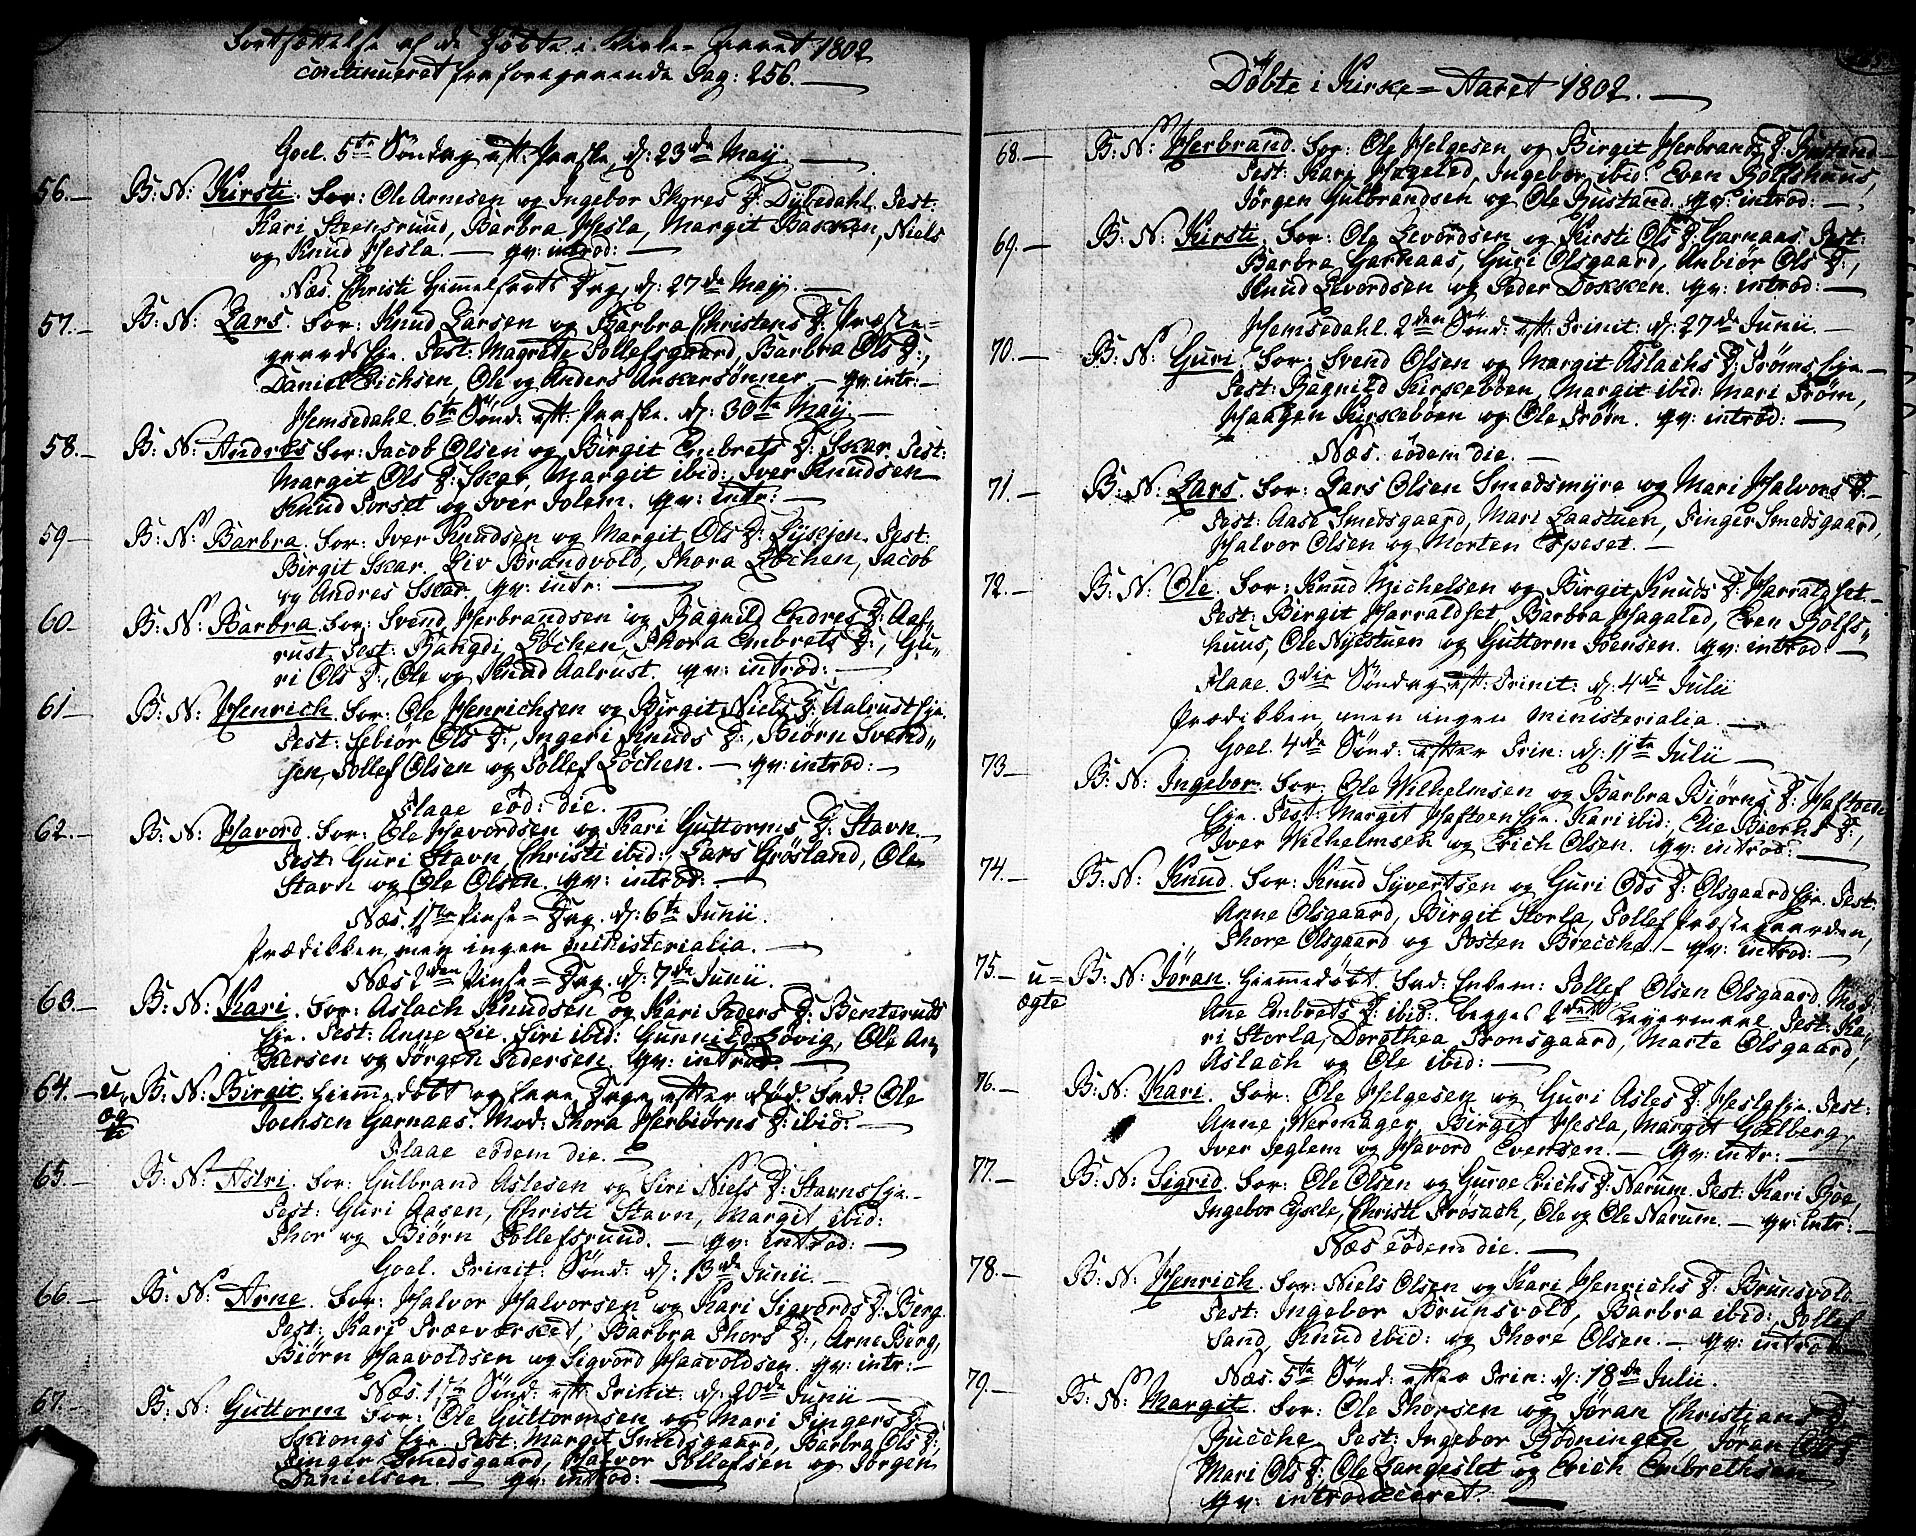 Fortsættelse af de Døbte i Kirke-Aaret 1802
continueret fra foregaaende Pag: 256.
Goel. 5te Søndag eft: Paaske, d: 23de Maij.
56. B: N: Kirsti. For: Ole Arnesen og Ingebor Thores D: Dybedahl. Test:
Kari Steensrund, Barbra Hesla, Margit Bakken, Niels
og Knud Hesla. qv: introd:
Næs. Christi Himmelfarts Dag, d: 27de Maij.
57. B: N: Lars. For: Knud Larsen og Barbra Christens D: Præste-
gaards Eje. Test: Magrete Tollefsgaard, Barbra Ols D:,
Daniel Erichsen, Ole og Anders Ankersønner. qv: intr:
Hemsedahl. 6te Sønd: eft: Paaske. d: 30te Maij.
58. B: N: Andres For: Jacob Olsen og Birgit Embrets D: Skar. Test:
Margit Ols D: Skar, Margit ibid: Iver Knudsen
Knud Torset og Iver Tolem. qv: intr:
59 B: N: Barbra. For: Iver Knudsen og Margit Ols D: Test:
Birgit Skar. Liv Brandvold, Thora Løchen, Jacob
og Andres Skar. qv: intr:
60 B: N: Barbra. For: Svend Herbrandsen og Ragnild Endres D: Aal-
rust. Test: Rangdi Løchen, Thora Embrets D:, Gu-
ri Ols D:, Ole og Knud Aalrust. qv: introd:
61 B: N: Henrich. For: Ole Henrichsen og Birgit Niels D: Aalrust Eje.
Test: Sebiør Ols D:, Ingeri Knuds D:, Biørn Svend-
sen, Tollef Olsen og Tollef Løchen. qv: introd:
Flaae eod: die.
62. B: N: Havord. For: Ole Havordsen og Kari Guttorms D: Stavn.
Test: Guri Stavn, Christi ibid:, Lars Grøsland, Ole
Stavn og Ole Olsen. qv: introd:
Næs. 1ste Pinse-Dag. d: 6te Junii.
Prædikken, men ingen ministerialia.
Næs 2den Pinse-Dag. d: 7de Junii.
63. B: N: Kari. For: Aslach Knudsen og Kari Peders D: Benterud
Eje. Test: Anne Lie. Siri ibid: Gunnild Løvig, Ole An-
kersen og Jørgen Pedersen. qv: introd:
64. u- B: N: Birgit. Hjemmedøbt og faae Dage efter død. Fad: Ole
ægte Joensen Garnaas. Mod: Thora Herbiørns D: ibid:
Flaae eodem die.
65 B: N: Astri. For: Gulbrand Aslesen og Siri Niels D: Stavns Eje.
Test: Guri Aasen, Christi Stavn, Margit ibid:
Thor og Biørn Tollefsrund. qv: introd:
Goel. Trinit: Sønd: d: 13de Junii.
66. B: N: Arne. For: Halvor Halvorsen og Kari Sigvords D: Berg.
Test: Kari Træværket, Barbra Thors D:, Arne Berg,
Biørn Haavoldsen og Sigvord Haavoldsen. qv: intr:
Næs. 1ste Sønd: eft: Trinit: d: 20de Junii
67. B: N: Guttorm For: Ole Guttormsen og Mari Fingers D:
Skiongs Eje. Test: Margit Smedsgaard, Barbra Ols D:,
Finger Smedsgaard, Halvor Tollefsen og Jørgen
Danielsen. qv: introd:
Døbte i Kirke-Aaret 1802.
68. B: N: Herbrand. For: Ole Helgesen og Birgit Herbrands D: Rustand
Test: Kari Hagaled, Ingebor ibid: Even Rolfshuus,
Jørgen Gulbrandsen og Ole Rustand. qv: introd:
69. B: N: Kirsti. For: Ole Levordsen og Kirsti Ols D: Garnaas. Test:
Barbra Garnaas, Guri Olsgaard, Anbiør Ols D:,
Knud Levordsen og Peder Dokken. qv: introd:
Hemsedahl. 2den Sønd: eft: Trinit: d: 27de Junii.
70. B: N: Guri. For: Svend Olsen og Margit Aslachs D: Trøms Eje.
Test: Ragnild Kirkebøen, Margit ibid: Mari Trøm,
Haagen Kirkebøen og Ole Trøm. qv: introd:
Næs. eodem die.
71 B: N: Lars. For: Lars Olsen Smedsmyre og Mari Halvors D:
Test: Aase Smedsgaard, Mari Laastuen, Finger Smedsgaard,
Halvor Olsen og Morten Espeset.
72. B: N: Ole. For: Knud Michelsen og Birgit Knuds D: Harraldset
Test: Birgit Harraldset, Barbra Hagaled, Even Rolfs-
huus, Ole Nyestuen og Guttorm Joensen. qv: introd:
Flaae. 3die Søndag eft: Trinit: d: 4de Julii
Prædikken, men ingen ministerialia.
Goel. 4de Sønd: efter Trin: d: 11te Julii
73 B: N: Ingebor. For: Ole Wilhelmsen og Barbra Biørns D: Haftoen
Eje. Test: Margit Haftoen Eje. Kari ibid:, Elie Biørns D:,
Iver Wilhelmsen og Erich Olsen. qv: introd:
74. B: N: Knud. For: Knud Syvertsen og Guri Ols D: Olsgaard Eje. Test:
Anne Olsgaard, Birgit Storla, Tollef Præstegaarden,
Thore Olsgaard og Tosten Brecche. qv: introd:
75 u- B: N: Jøran. Hjemmedøbt. Fad: Enkem: Tollef Olsen Olsgaard, Mod:
ægte Ane Embrets D: ibid. begges 2det Leyermaal. Test: Ka-
ri Storla, Dorothea Tronsgaard, Marte Olsgaard,
Aslach og Ole ibid:
76. B: N: Kari. For: Ole Helgesen og Guri Asles D: Hesla Eje. Test:
Anne Wermager, Birgit Hesla, Margit Goelberg,
Iver Teglem og Havord Evensen. qv: intr:
77. B: N: Sigrid. For: Ole Olsen og Guroe Erichs D: Narum. Test: Kari Roe,
Ingebor Eykle, Christi Frøsach, Ole og Ole Narum. qv: intr:
Næs eodem die.
78. B: N: Henrich. For: Niels Olsen og Kari Henrichs D: Brunsvold.
Test: Ingebor Brunsvold, Barbra ibid:, Tollef
Sand, Knud ibid: og Thore Olsen. qv: introd:
Næs. 5te Sønd: efter Trin: d: 18de Julii.
79. B: N: Margit. For: Ole Thorsen og Jøran Christians D:
Rucche. Test: Ingebor Bødningen, Jøran Ols D:
Mari Ols D:, Ole Langeslet og Erich Embrethsen
qv: introduceret.